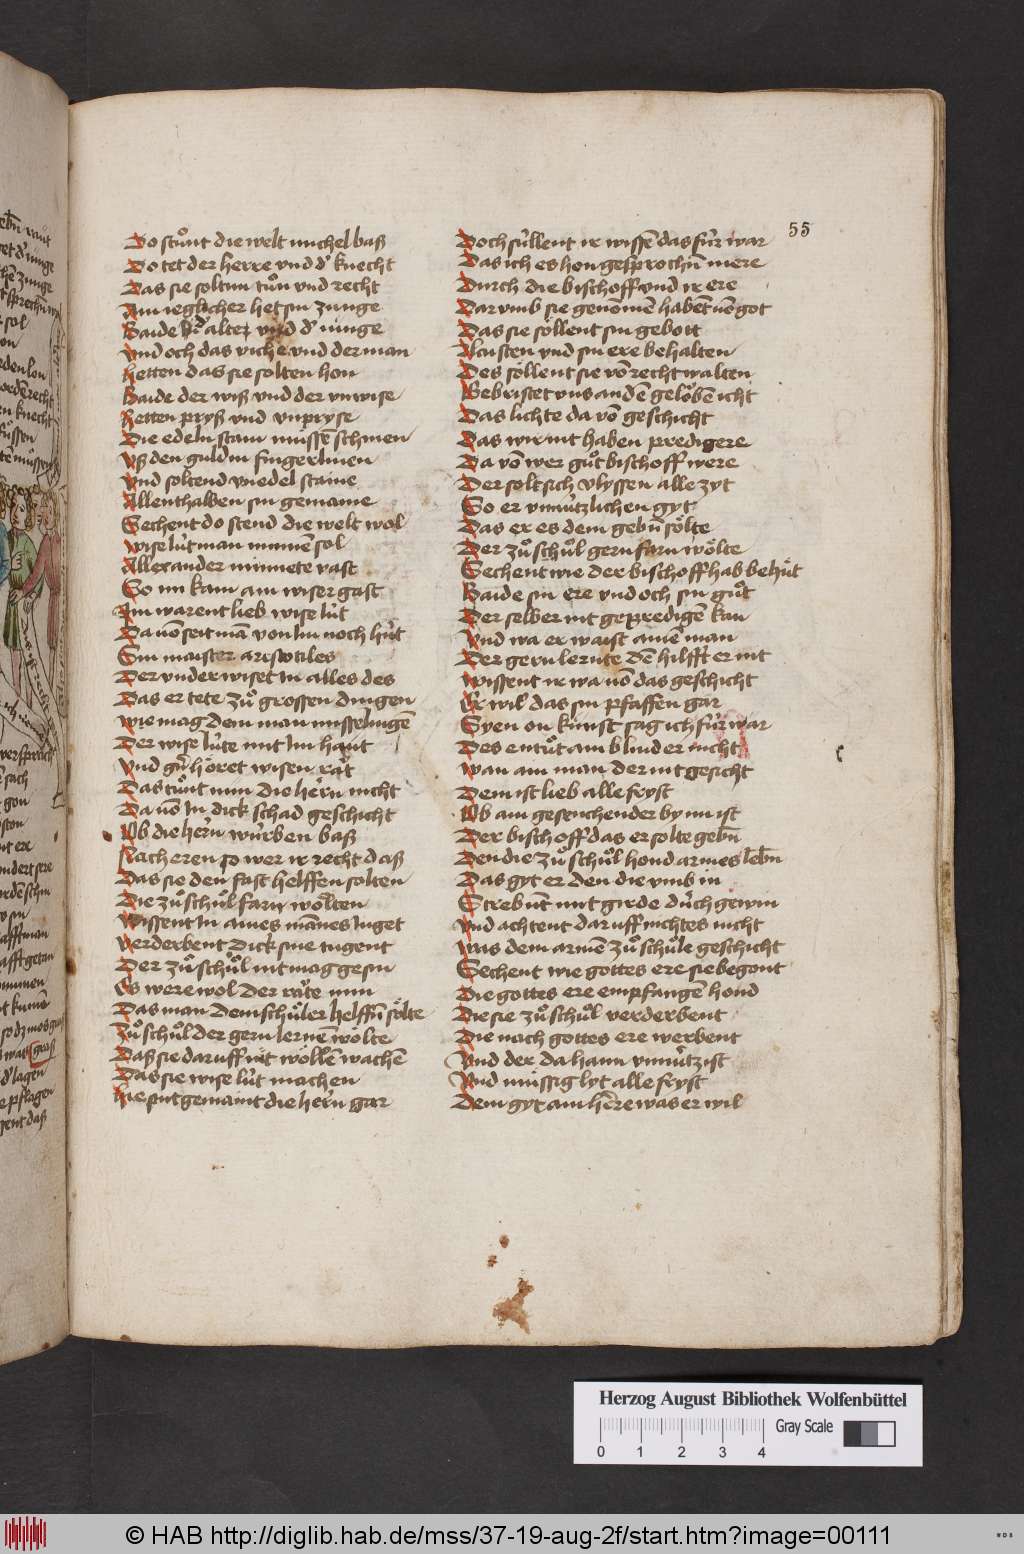 55
Do stuͦnt die welt michel baß
Do tet der herre vnd d' knecht
Das sie soltin tuͦn vnd recht
Ain ieglicher het sin zunge
Baide alter vnd d' iunge
Vnd och das viche vnd der man
Hetten das sie solten hon
Baide der wiß vnd der vnwise
Hetten pryß vnd vnpryse
Die edeln stain muͤssē schinen
Vß den guldin fingerlinen
Vnd soltend vnedel staine
Allenthalben sin gemaine
Sechent do stend die welt wol
Wise luͤt man minnē sol
Allexander minnete vast
So im kam ain wiser gast
Im warent lieb wise luͤt
Da vō seit mā von im noch huͤt
Sin maister aristotiles
Der vnderwiset in alles des
Das er tete zuͦ grossen dingen
Wie mag dem man misselingē
Der wise luͤte mit im haut
Vnd gern höret wisen rāt
Das tuͦnt nun die hern nicht
Da vō in dick schad geschicht
Ob die hern wurben baß
Nach eren so wer ir recht daß
Das sie den fast helffen solten
Die zuͦ schuͦl farn wolten
Wissent in aines mānes iuget
Verderbent dick sine tugent
Der zuͦ schuͦl nit mag gesin
Es were wol der räte min
Das man dem schuͦler helffn sölte
Zuͦ schuͦl der gern lernē wölte
Daß sie daruff nit wöllē wachē
Das sie wise luͤt machen
Hie sint gemaint die hern gar
Doch süllent ir wissē das für war
Das ich es hon gesprochn mere
Durch die bischoff vnd ir ere
Darvmb sie genōmē habēt vō got
Das sie söllent sin gebott
Laisten vnd sin ere behalten
Des söllent sie vō recht walten
Gebristet vns an dē gelöbē icht
Das lichte da vō geschicht
Das wir nit haben predigere
Da vō wer guͦt bischoff were
Der solt sich vlyssen alle zyt
So er vnnützlichen gyt
Das er es dem gebn sölte
Der zuͦ schuͦl gern farn wölte
Sechent wie der bischoff hab behuͤt
Baide sin ere vnd och sin guͦt
Der selber nit gepredigē kan
Vnd wa er waist ainē man
Der gern lernte dē hilfft er nit
Wissent ir wa vō das geschicht
Er wil das sin pfaffen gar
Syen on kunst sag ich für war
Des entuͦt ain blinder nicht
Wan ain man der nit gesicht
Dem ist lieb alle fryst
Ob ain gesenchender by im ist
Der bischoff das er solte gebn
Den die zuͦ schuͦl hond armes lebn
Das gyt er den die vmb in
Strebūt mit girde durch gewin
Vnd achtent daruff nichtes nicht
Was dem armē zuͦ schuͦle geschicht
Sechent wie gottes ere sie begont
Die gottes ere empfangē hond
Die sie zuͦ schuͦl verderbent
Die nach gottes ere werbent
Vnd der da haim vnnütz ist
Vnd müssig lyt alle fryst
Dem gyt ain herre was er wil
Herzog August Bibliothek Wolfenbüttel
Gray Scale
0 1 2 3 4
© HAB http://diglib.hab.de/mss/37-19-aug-2f/start.htm?image=00111